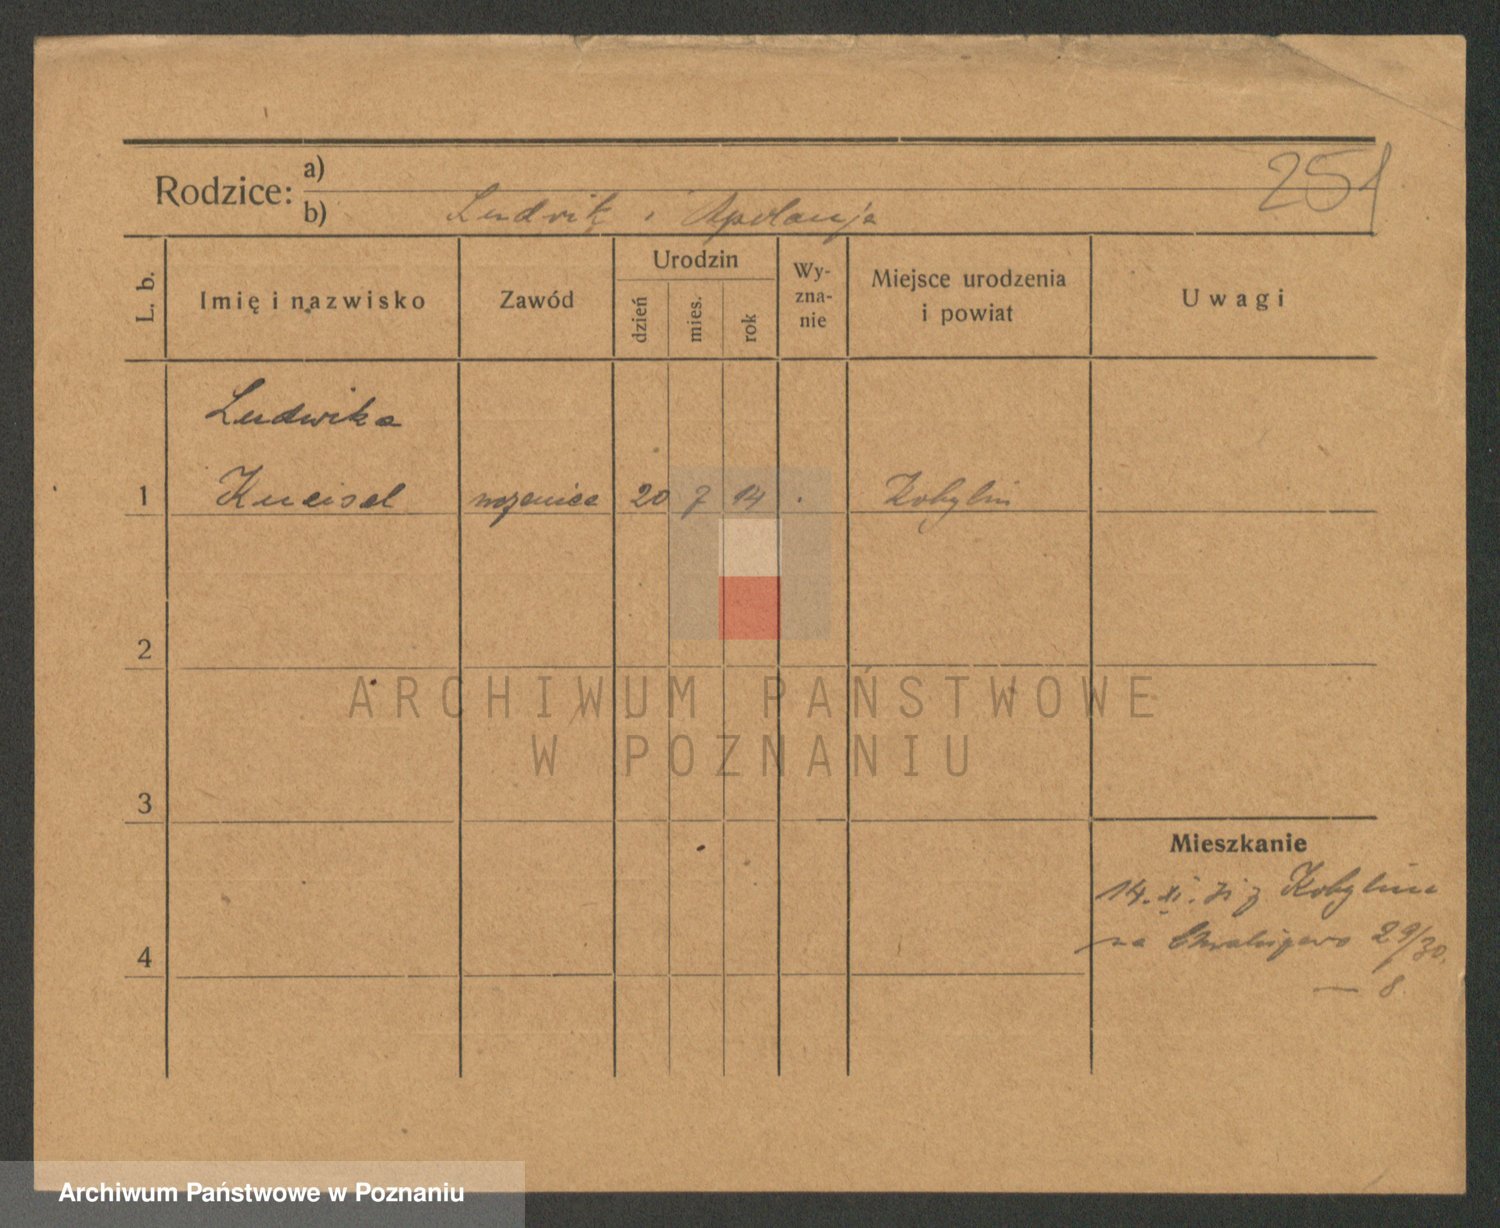 251
Rodzice: a)
b) Ludwik i Apolonja
L. b.
Imię i nazwisko
Zawód
Urodzin
dzień
mies.
rok
Wy-
zna-
nie
Miejsce urodzenia
i powiat
Uwagi
Ludwika
1 20 7 14 Kobylin
2
ARCHIWUM PAŃSTWOWE
W POZNANIU
3
Mieszkanie
14. XI. 31 z Kobylina
4
na 29/30.
— 8.
Archiwum Państwowe w Poznaniu